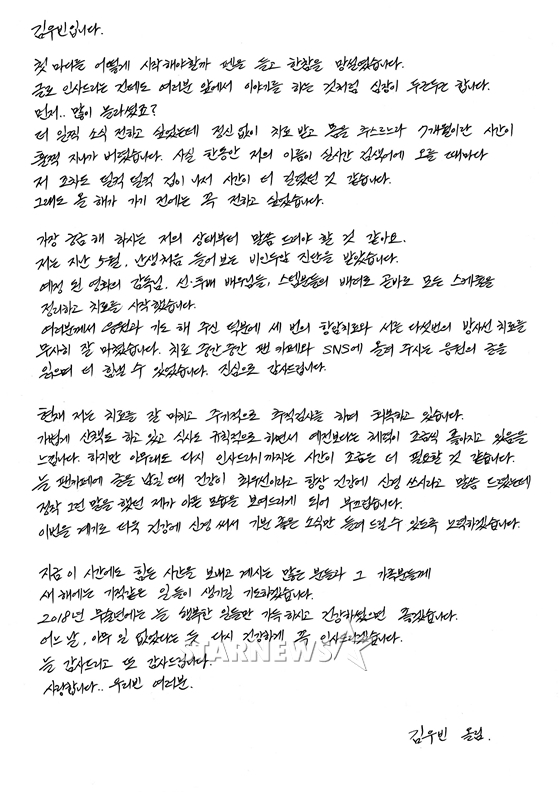 김우빈입니다.
첫 마디를 어떻게 시작해야할까 펜을 들고 한참을 망설였습니다.
글로 인사드리는 건데도 여러분 앞에서 이야기를 하는 것처럼 심장이 두근두근 합니다.
먼저.. 많이 놀라셨죠?
더 일찍 소식 전하고 싶었는데 정신 없이 치료 받고 몸을 추스르느라 7개월이란 시간이
훌쩍 지나가 버렸습니다. 사실 한동안 저의 이름이 실시간 검색어에 오를 때마다
저 조차도 덜컥 덜컥 겁이 나서 시간이 더 길었던 것 같습니다.
그래도 올 해가 가기 전에는 꼭 전하고 싶었습니다.
가장 궁금해 하시는 저의 상태부터 말씀 드려야 할 것 같아요.
저는 지난 5월, 난생처음 들어 보는 비인두암 진단을 받았습니다.
예정 된 영화의 감독님, 선·후배 배우님들, 스텝분들의 배려로 곧바로 모든 스케줄을
정리하고 치료를 시작했습니다.
여러분께서 응원과 기도 해 주신 덕분에 세 번의 항암치료와 서른 다섯번의 방사선 치료를
무사히 잘 마쳤습니다. 치료 중간중간 팬 카페와 SNS에 올려 주시는 응원의 글을
읽으며 더 힘낼 수 있었습니다. 진심으로 감사드립니다.
현재 저는 치료를 잘 마치고 주기적으로 추적검사를 하며 회복하고 있습니다.
가볍게 산책도 하고 있고 식사도 규칙적으로 하면서 예전보다는 체력이 조금씩 좋아지고 있음을
느낍니다. 하지만 아무래도 다시 인사드리기까지는 시간이 조금은 더 필요할 것 같습니다.
늘 팬카페에 글을 남길 때 건강이 최우선이라고 항상 건강에 신경 쓰시라고 말씀 드렸는데
정작 그런 말을 했던 제가 아픈 모습을 보여드리게 되어 부끄럽습니다.
이번을 계기로 더욱 건강에 신경 써서 기분 좋은 소식만 들려 드릴 수 있도록 노력하겠습니다.
지금 이 시간에도 힘든 시간을 보내고 계시는 많은 분들과 그 가족분들께
새 해에는 기적같은 일들이 생기길 기도하겠습니다.
2018년 무술년에는 늘 행복한 일들만 가득 하시고 건강하셨으면 좋겠습니다.
어느 날, 아무 일 없었다는 듯 다시 건강하게 꼭 인사드리겠습니다.
STARNEWS
늘 감사드리고 또 감사드립니다.
사랑합니다.. 우리빈 여러분.
김우빈 올림.